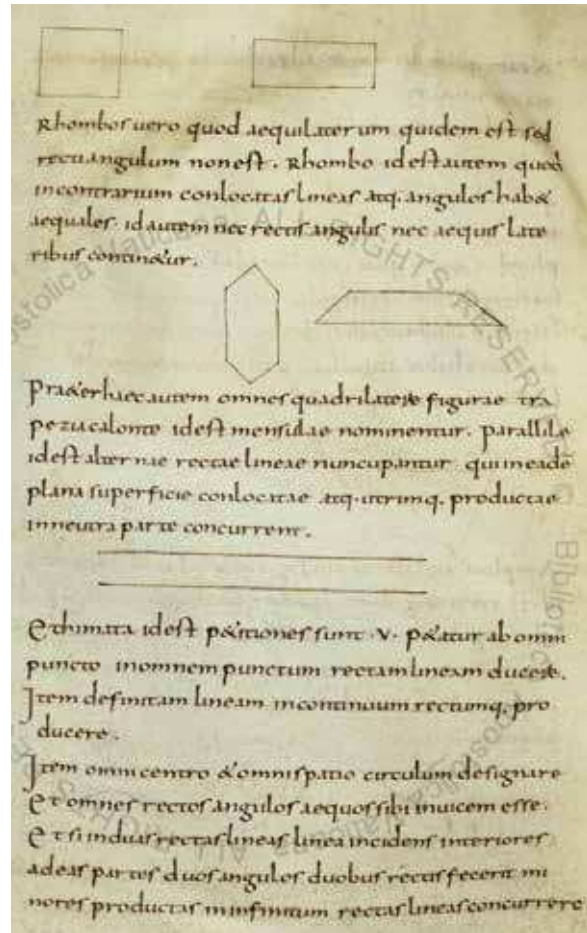 Rhombos uero quod aequilaterum quidem est sed
rectiangulum non est. Rhombo id est autem quod
in contrarium conlocatas lineas atq. angulos hab&
aequales. id autem nec rectis angulis nec aequis late
ribus contin&ur.
Pra&er haec autem omnes quadrilaterae figurae tra
pezia calonte id est mensulae nominentur. parallile
id est alternae rectae lineae nuncupantur qui in eadē
plana superficie conlocatae atq. utrimq. productae
in neutra parte concurrent.
Ethimata id est p&itiones sunt .V. p&atur ab omni
puncto in omnem punctum rectam lineam ducere.
Item definitam lineam in continuum rectumq. pro
ducere.
Item omni centro & omni spatio circulum designare
Et omnes rectos angulos aequos sibi inuicem esse.
Et si in duas rectas lineas linea incidens interiores
ad eas partes duos angulos duobus rectis fecerit mi
nores productas in infinitum rectas lineas concurrere